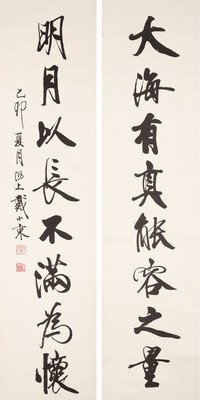 大海有真能容之量
明月以長不滿為懷
己卯夏月海上戴小東